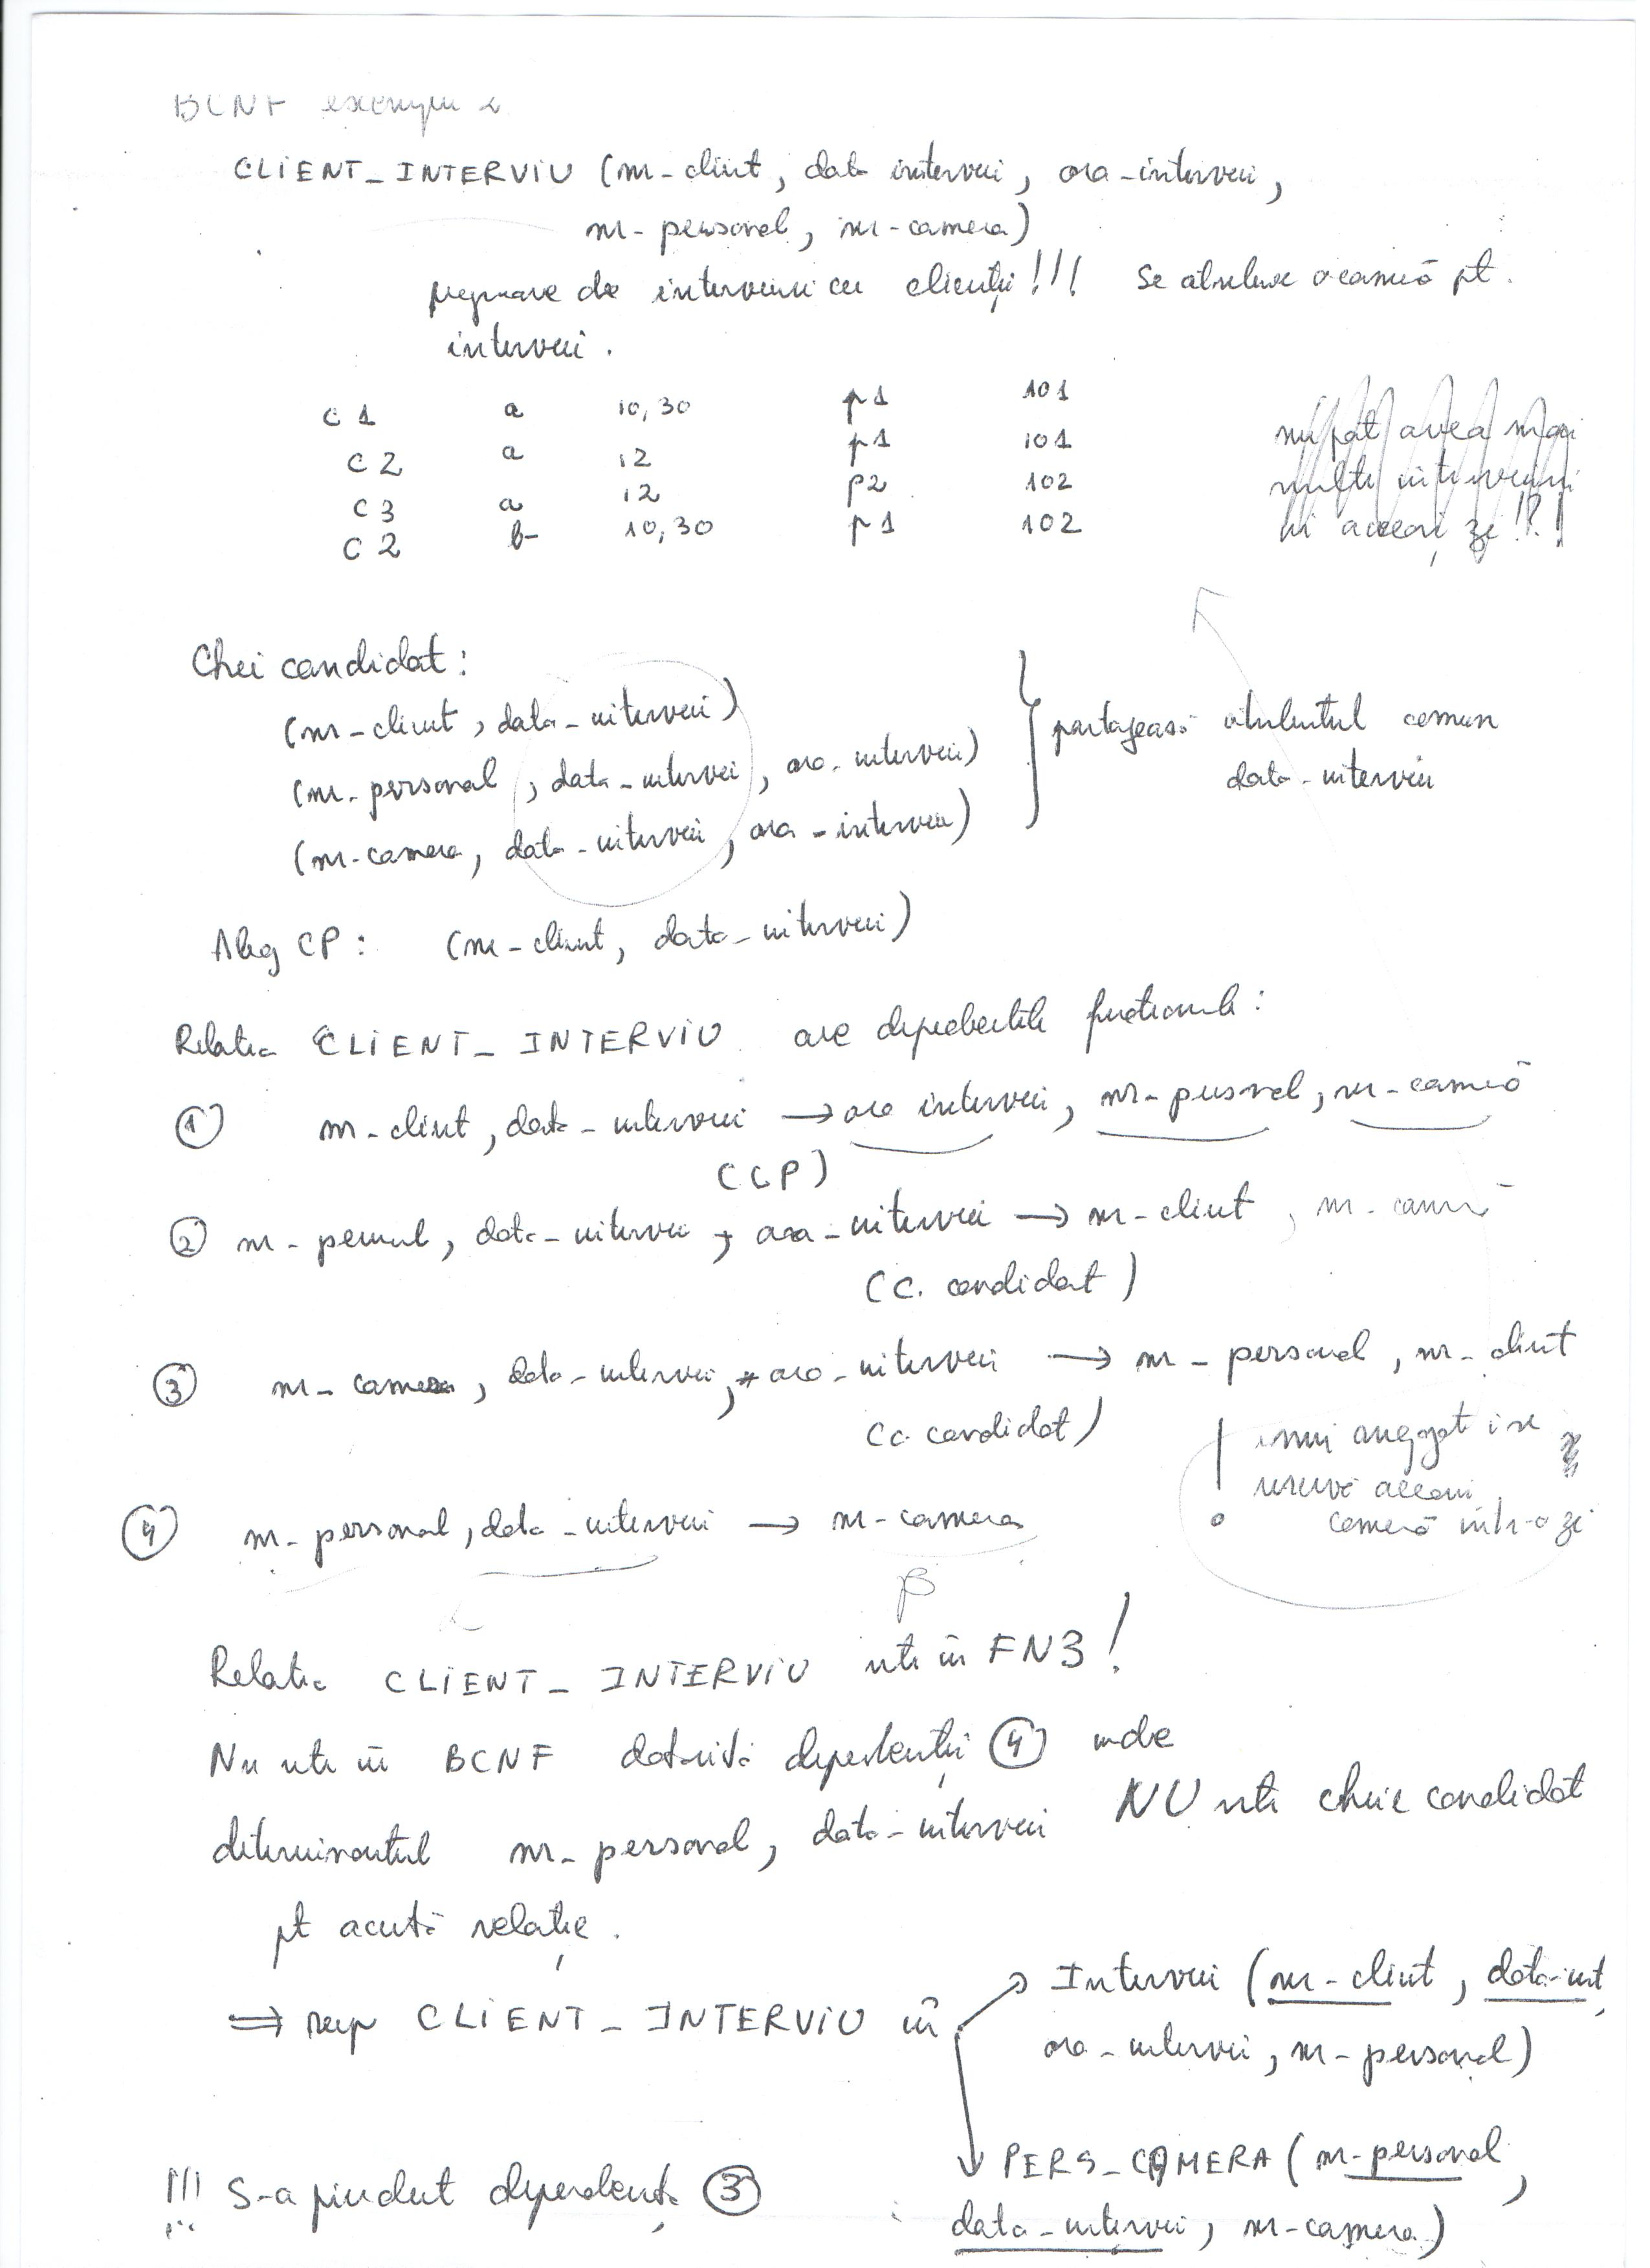 BCNF exemplu 2
CLIENT_INTERVIU (nr-client, data interviu, ora-interviu,
nr-personal, nr-camera)
pegrave de interviuri cu clienții!!! Se atribuie o cameră pt.
interviu.
C1 a 10,30 p1 101
C2 a 12 p1 101
C3 a 12 p2 102
C2 b 10,30 p1 102
nu pot avea mai
multe interviuri
în aceeași zi!!!
Chei candidat:
(nr-client, data-interviu)
(nr-personal, data-interviu, ora-interviu)
(nr-camera, data-interviu, ora-interviu)
partajează atributul comun
data-interviu
Aleg CP: (nr-client, data-interviu)
Relatia CLIENT_INTERVIU are dependentele functionale:
① nr-client, data-interviu → ora interviu, nr-personal, nr-cameră
(CP)
② nr-personal, data-interviu, ora-interviu → nr-client, nr-cameră
(C. candidat)
③ nr-camera, data-interviu, ora-interviu → nr-personal, nr-client
(c. candidat)
! unui angajat i se
rezervă aceeași
cameră într-o zi
④ nr-personal, data-interviu → nr-camera
α β
Relatia CLIENT_INTERVIU este în FN3!
Nu este în BCNF datorită dependenței ④ unde
determinantul nr-personal, data-interviu NU este cheie candidat
pt această relație.
⇒ rup CLIENT_INTERVIU în
Interviu (nr-client, data-int,
ora-interviu, nr-personal)
PERS_CAMERA (nr-personal,
data-interviu, nr-camera)
!!! S-a pierdut dependența ③